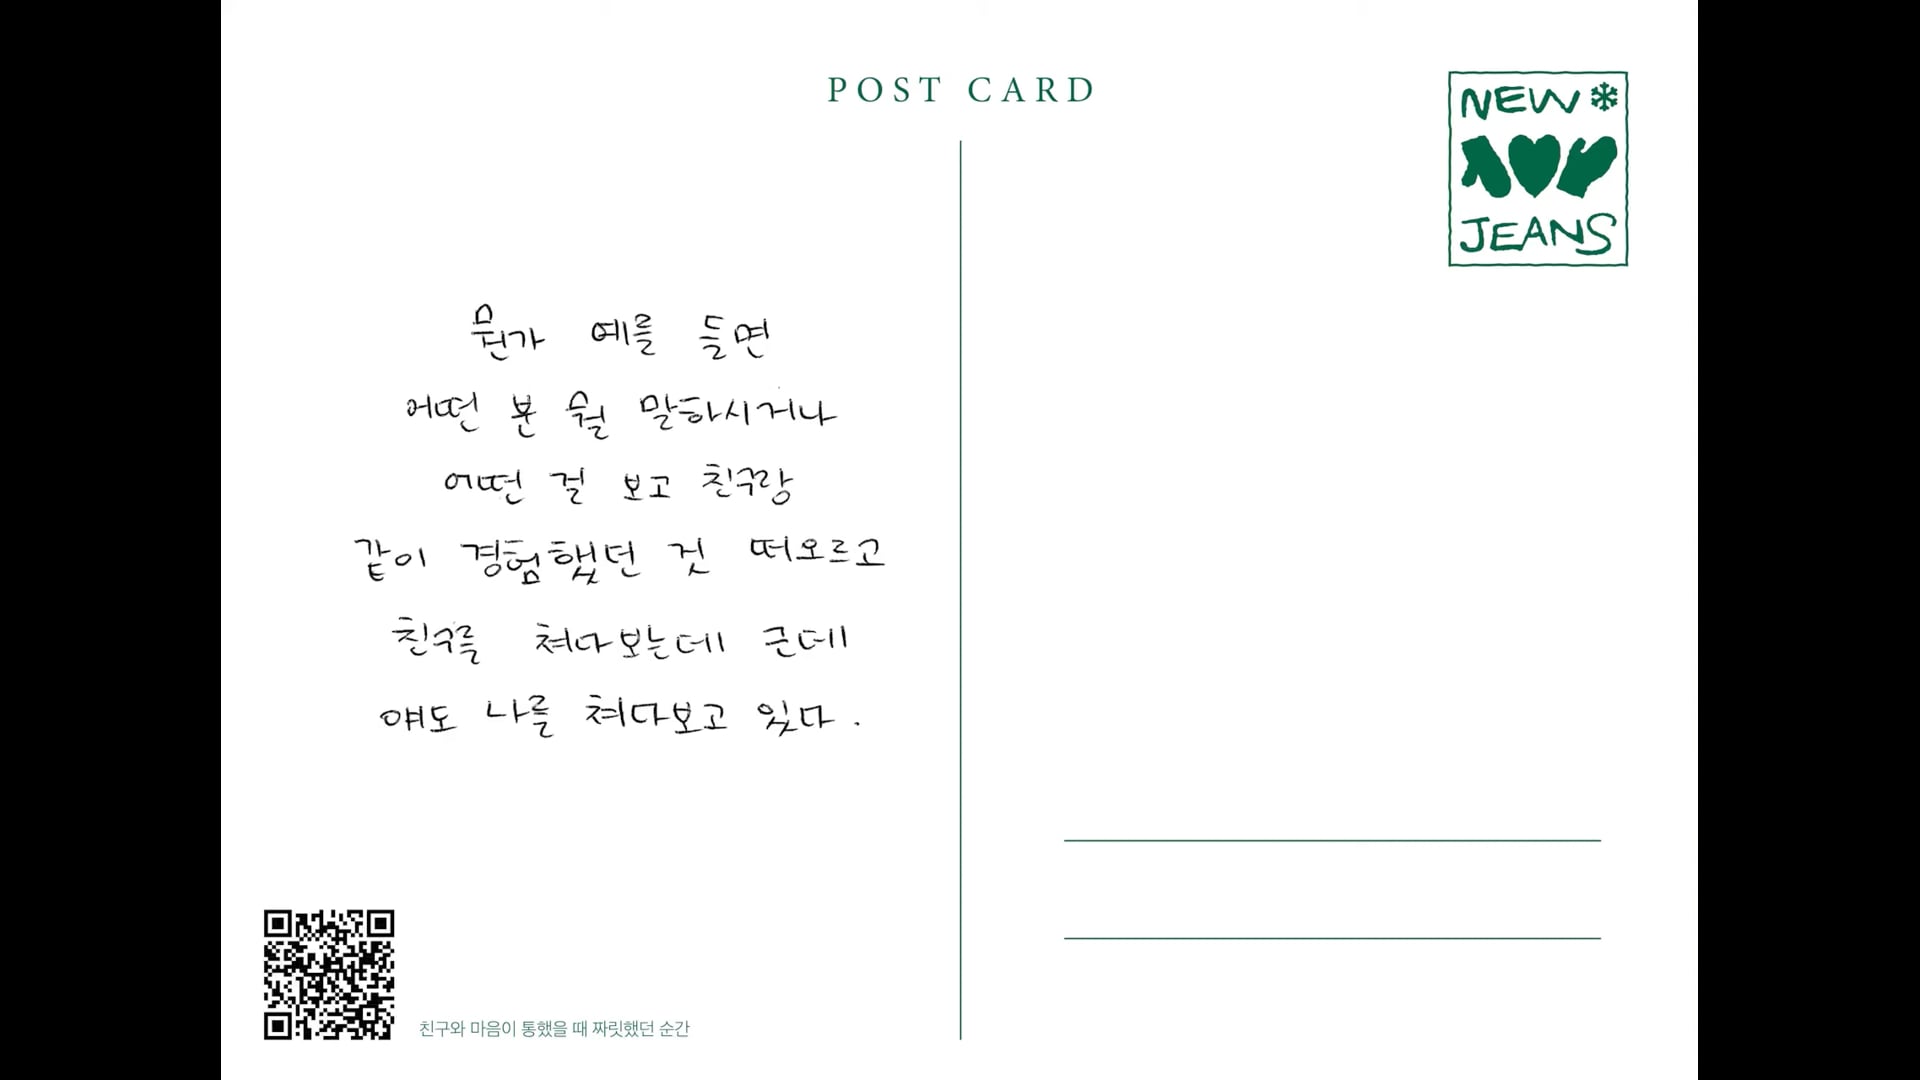 POST CARD
NEW
JEANS
뭔가 예를 들면
어떤 분 뭘 말하시거나
어떤 걸 보고 친구랑
같이 경험했던 것 떠오르고
친구를 쳐다보는데 근데
얘도 나를 쳐다보고 있다.
친구와 마음이 통했을 때 짜릿했던 순간